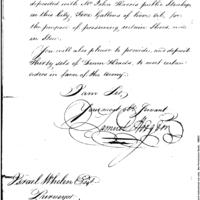 deposited with Mr John Harris public Storekeeper
in this City, Five Gallons of lime oil, for
the purpose of preserving certain Skins now
in Store.
You will also please to provide, and deposit
Thirty sets of Drum Heads, to meet certain
orders in favor of the army.
I am Sir,
Your most obt Servant
Samuel Hodgdon
Israel Whelen Esqr
Purveyor